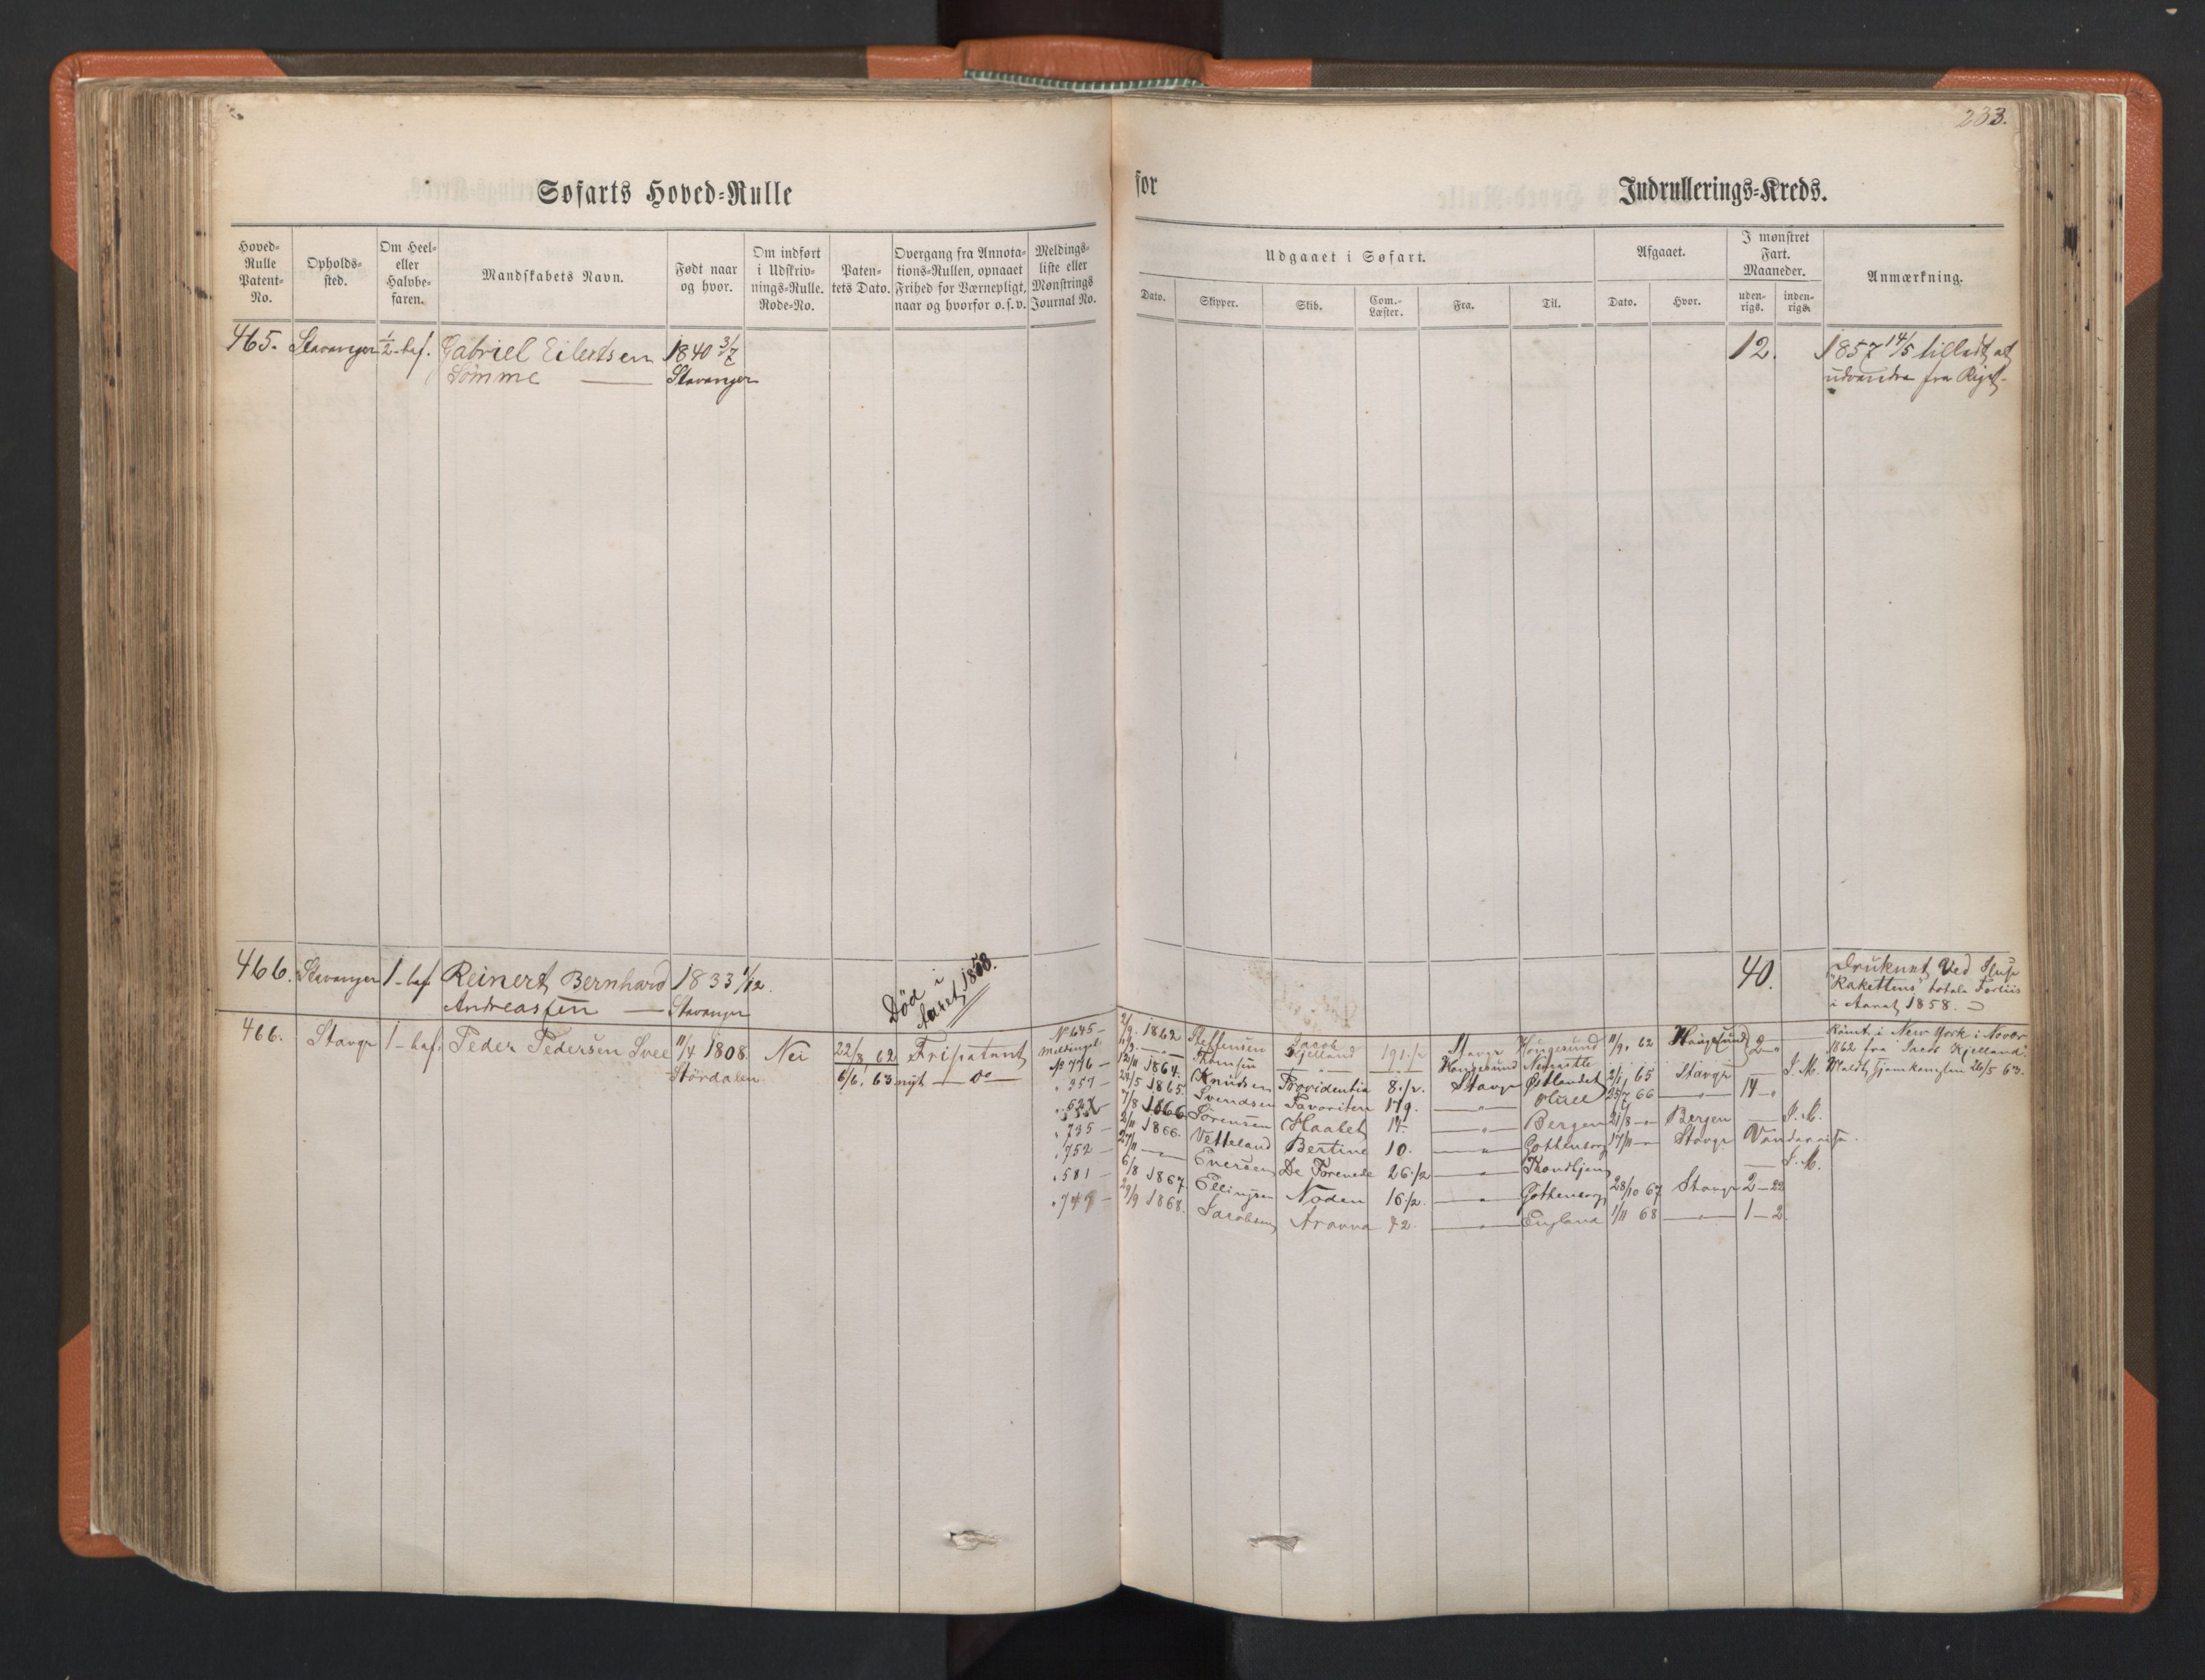 233.
Søfarts Hoved-Rulle
for
Indrullerings-Kreds.
Hoved-Rulle Patent-No.
Opholds-sted.
Om Heel- eller Halvbe-faren.
Mandskabets Navn.
Født naar og hvor.
Om indført i Udskriv-nings-Rulle. Rode-No.
Paten-tets Dato.
Overgang fra Annota-tions-Rullen, opnaaet Frihed for Værnepligt, naar og hvorfor o.s.v.
Meldings-liste eller Mønstrings Journal No.
Udgaaet i Søfart.
Dato.
Skipper.
Skib.
Com.-Læster.
Fra.
Til.
Afgaaet.
Dato.
Hvor.
I mønstret Fart. Maaneder.
uden-rigs.
inden-rigs.
Anmærkning.
465. Stavanger ½-bef. Gabriel Eilertsen 1840 3/7 12. 1857 14/5 tilladt at
Sømme — Stavanger udvandre fra Riget.
466. Stavanger 1-bef Reinert Bernhard 1833 1/12. Død i 40. Druknet ved
Andreassen — Stavanger Aaret 1858. "Rakettens" totale Forliis
i Aaret 1858.
466. Stavgr 1-bef. Peder Pedersen Svee 11/4 1808. Nei 22/8 62 Fripatent No 645 - 2/9. 1862 Steffensen Jacob Kjelland 191.½ Stavgr Haugesund 11/9. 62 Haugesund Rømt i New York i Novbr
Størdalen 6/6. 63 nyt — Do — Meldingsl. 11/9. — Thomsen — " — Haugesund 2 - " 1862 fra Jacob Kjelland.
No 776 - 12/11 1864. Knudsen Providentia 8.½. Stavgr Østlandet 2/1 65 Stavgr — I. M. 26/5 63.
" 357 - 24/5 1865. Svendsen Favoriten 179. — " — 25/7 66 — " — 14 - "
7/8 1866 Sørensen Haabet 14. — " — Bergen 21/8 — " Bergen — I. M.
" 735 - 2/11 1866. Vetteland Bertine 10. — " — Gothenborg 17/11 — " Stavgr
" 752 - 27/11 — " — De Forenede 26.½ — " — Trondhjem — I. M.
" 501 - 6/8 1867. Ellingsen Noden 16.½. — " — Gothenborg 28/10 67 Stavgr 2 - 22
" 749 - 29/9 1868. Jacobsen 72. — " — England 1/11 68 — " — 1 - 2.